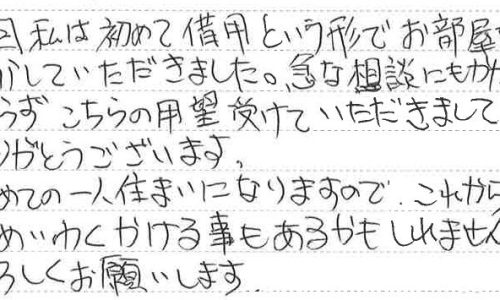 回私は初めて借用という形でお部屋
かしていただきました。急な相談にもかか
らずこちらの用望受けていただきまして
りがとうございます。
めての一人住まいになりますので、これから
めいわくかける事もあるかもしれません
ろしくお願いします.